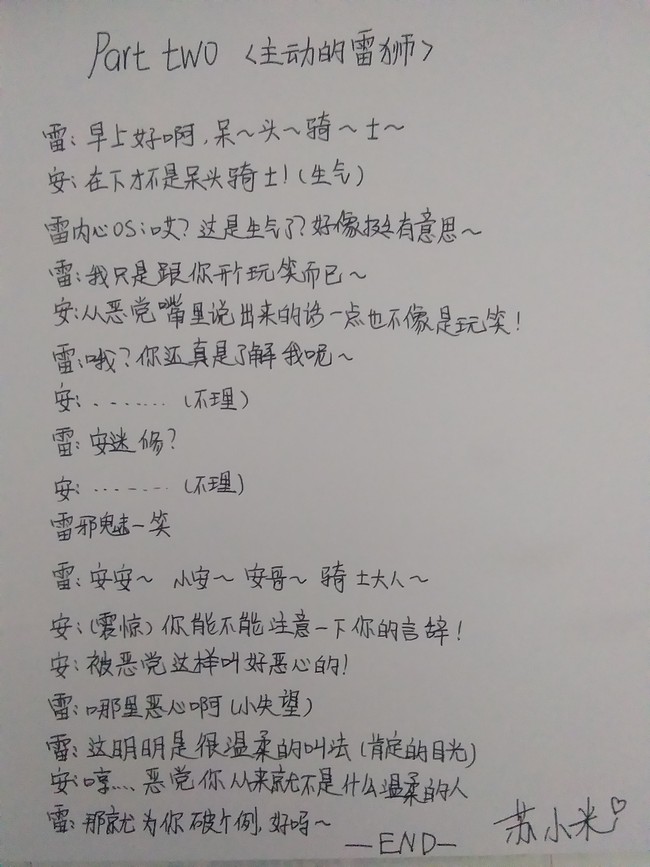 Part two <主动的雷狮>
雷:早上好啊,呆~头~骑~士~
安:在下才不是呆头骑士!(生气)
雷内心OS:哎?这是生气了?好像挺有意思~
雷:我只是跟你开个玩笑而已~
安:从恶党嘴里说出来的话一点也不像是玩笑!
雷:哦?你还真是了解我呢~
安:........(不理)
雷:安迷修?
安:........(不理)
雷邪魅一笑
雷:安安~ 小安~ 安哥~ 骑士大人~
安:(震惊)你能不能注意一下你的言辞!
安:被恶党这样叫好恶心的!
雷:哪里恶心啊(小失望)
雷:这明明是很温柔的叫法(肯定的目光)
安:哼....恶党你从来就不是什么温柔的人
雷:那就为你破个例,好吗~
—END—
苏小米♡